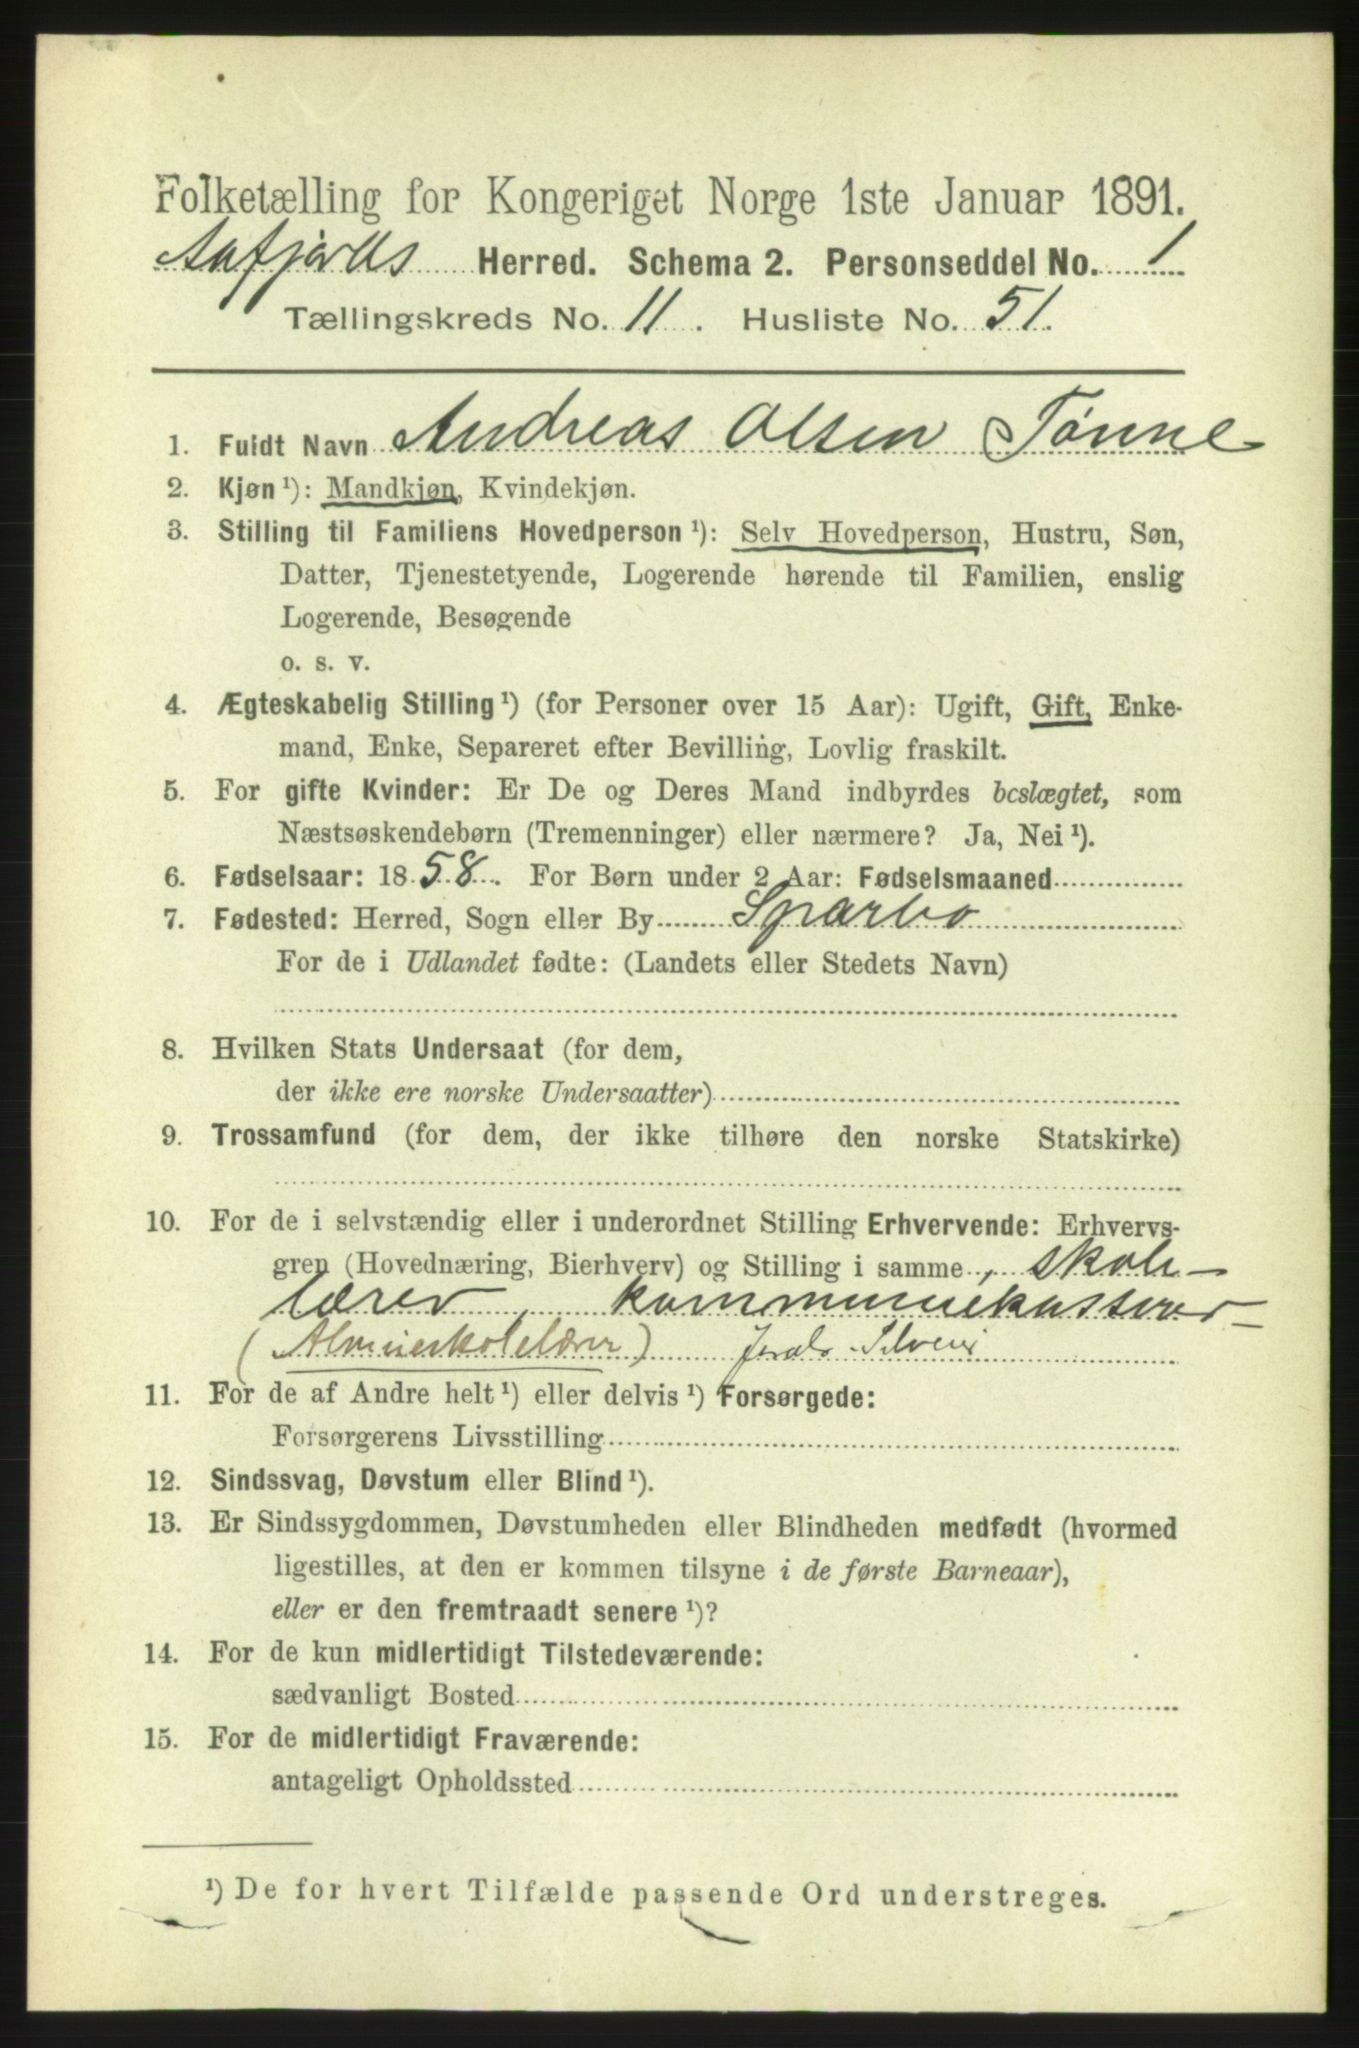 Folketælling for Kongeriget Norge 1ste Januar 1891.
Aafjords Herred. Schema 2. Personseddel No. 1
Tællingskreds No. 11. Husliste No. 51.
1. Fuldt Navn Andreas Olsen Tønne
2. Kjøn ¹): Mandkjøn, Kvindekjøn.
3. Stilling til Familiens Hovedperson ¹): Selv Hovedperson, Hustru, Søn,
Datter, Tjenestetyende, Logerende hørende til Familien, enslig
Logerende, Besøgende
o. s. v.
4. Ægteskabelig Stilling ¹) (for Personer over 15 Aar): Ugift, Gift, Enke-
mand, Enke, Separeret efter Bevilling, Lovlig fraskilt.
5. For gifte Kvinder: Er De og Deres Mand indbyrdes beslægtet, som
Næstsøskendebørn (Tremenninger) eller nærmere? Ja, Nei ¹).
6. Fødselsaar: 1858. For Børn under 2 Aar: Fødselsmaaned
7. Fødested: Herred, Sogn eller By Sparbo
For de i Udlandet fødte: (Landets eller Stedets Navn)
8. Hvilken Stats Undersaat (for dem,
der ikke ere norske Undersaatter)
9. Trossamfund (for dem, der ikke tilhøre den norske Statskirke)
10. For de i selvstændig eller i underordnet Stilling Erhvervende: Erhvervs-
gren (Hovednæring, Bierhverv) og Stilling i samme, skole-
lærer, kommunekasserer
(Almueskolelærer)
11. For de af Andre helt ¹) eller delvis ¹) Forsørgede:
Forsørgerens Livsstilling
12. Sindssvag, Døvstum eller Blind ¹).
13. Er Sindssygdommen, Døvstumheden eller Blindheden medfødt (hvormed
ligestilles, at den er kommen tilsyne i de første Barneaar),
eller er den fremtraadt senere ¹)?
14. For de kun midlertidigt Tilstedeværende:
sædvanligt Bosted
15. For de midlertidigt Fraværende:
antageligt Opholdssted
¹) De for hvert Tilfælde passende Ord understreges.